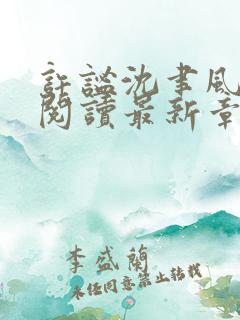 許謐沈聿風
閱讀最新章
李盛蘭
未经同意禁止转载